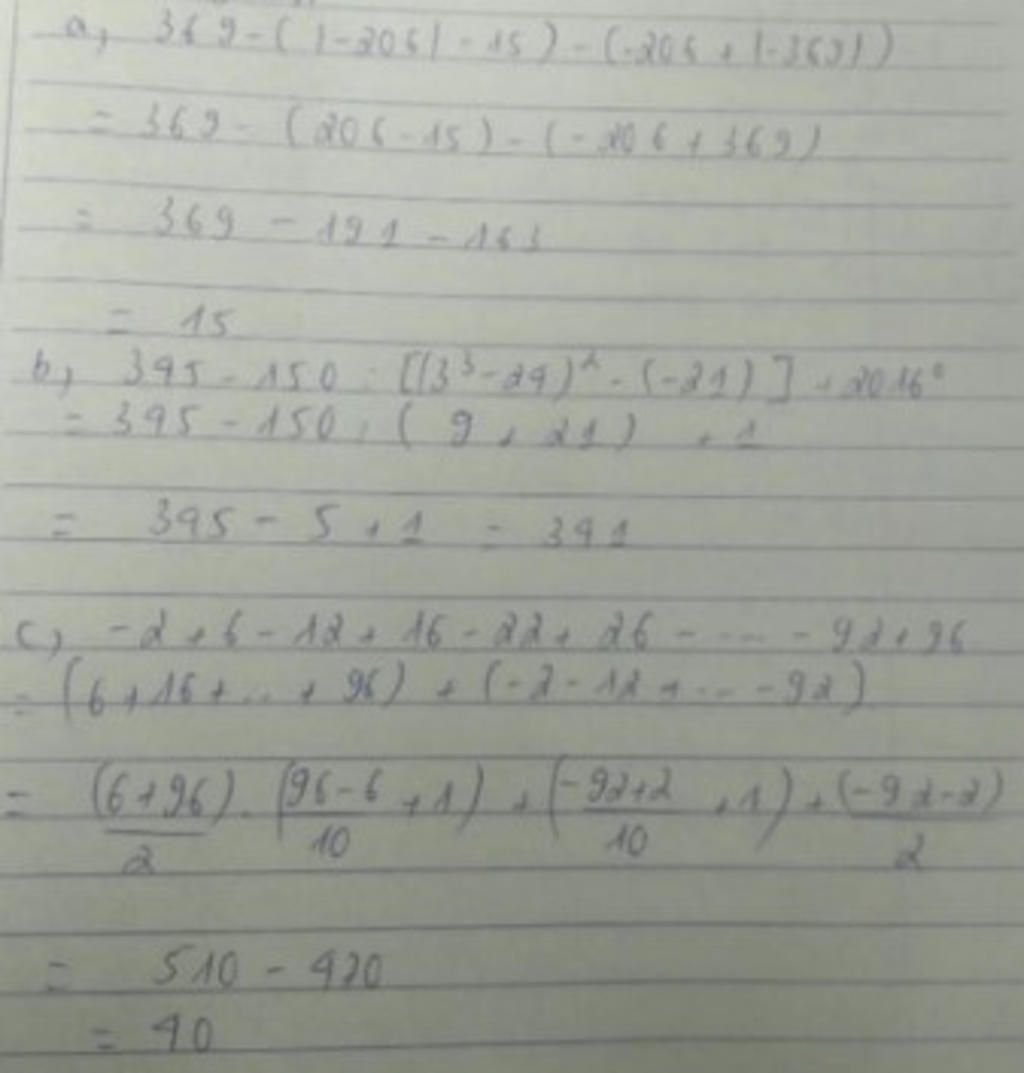 a, 369 - (|-206| - 15) - (-206 + |-369|)
= 369 - (206 - 15) - (-206 + 369)
= 369 - 191 - 163
= 15
b, 395 - 150 : [(3³ - 24)² - (-21)] + 2016⁰
= 395 - 150 : (9 + 21) + 1
= 395 - 5 + 1 = 391
c, -2 + 6 - 12 + 16 - 22 + 26 - ... - 92 + 96
= (6 + 16 + .. + 96) + (-2 - 12 + ... - 92)
= (6+96)/2 . (96-6/10 + 1) + (-92+2/10 + 1) + (-92-2)/2
= 510 - 470
= 40